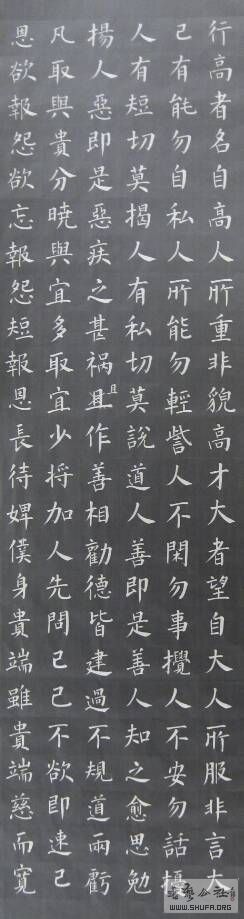 行高者名自高人所重非貌高才大者望自大人所服非言大
己有能勿自私人所能勿輕訾人不閑勿事攪人不安勿話擾
人有短切莫揭人有私切莫說道人善即是善人知之愈思勉
揚人惡即是惡疾之甚祸且作善相勸德皆建過不規道兩虧
且
凡取與貴分曉與宜多取宜少將加人先問己己不欲即速己
恩欲報怨欲忘報怨短報恩長待婢僕身貴端雖貴端慈而寬
WWW.SHUFA.ORG